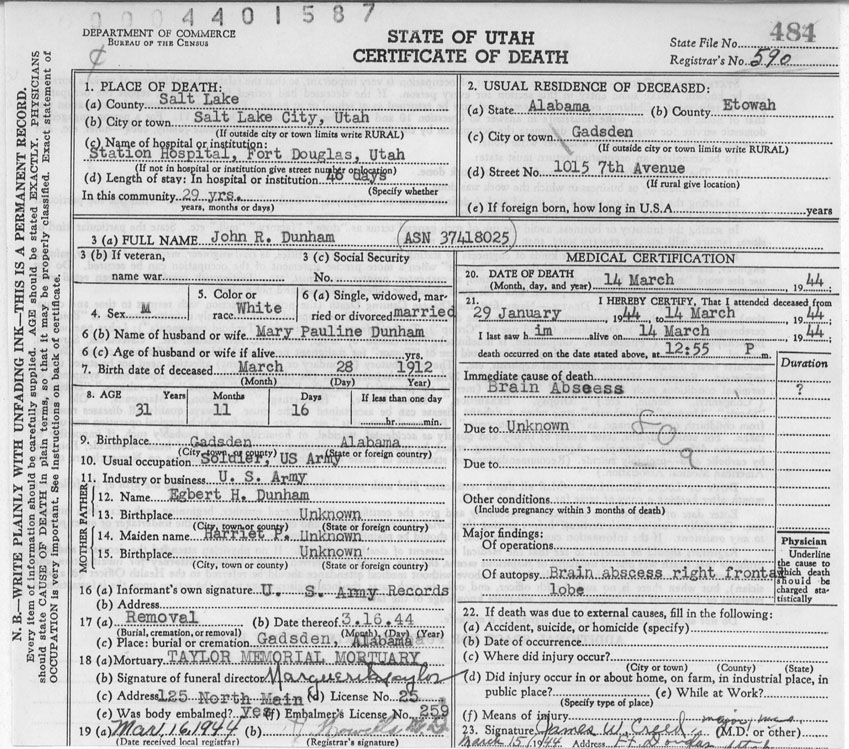 0004401587
DEPARTMENT OF COMMERCE
BUREAU OF THE CENSUS
STATE OF UTAH
CERTIFICATE OF DEATH
State File No. 484
Registrar's No. 590
N. B.—WRITE PLAINLY WITH UNFADING INK—THIS IS A PERMANENT RECORD.
Every item of information should be carefully supplied. AGE should be stated EXACTLY. PHYSICIANS
should state CAUSE OF DEATH in plain terms, so that it may be properly classified. Exact statement of
OCCUPATION is very important. See instructions on back of certificate.
1. PLACE OF DEATH:
(a) County Salt Lake
(b) City or town Salt Lake City, Utah
(If outside city or town limits write RURAL)
(c) Name of hospital or institution:
Station Hospital, Fort Douglas, Utah
(If not in hospital or institution give street number or location)
(d) Length of stay: In hospital or institution 46 days
(Specify whether
In this community 29 yrs.
years, months or days)
2. USUAL RESIDENCE OF DECEASED:
(a) State Alabama (b) County Etowah
(c) City or town Gadsden
(If outside city or town limits write RURAL)
(d) Street No. 1015 7th Avenue
(If rural give location)
(e) If foreign born, how long in U.S.A. years
3 (a) FULL NAME John R. Dunham ASN 37418025
3 (b) If veteran, 3 (c) Social Security
name war No.
4. Sex M 5. Color or race White 6 (a) Single, widowed, married or divorced married
6 (b) Name of husband or wife Mary Pauline Dunham
6 (c) Age of husband or wife if alive yrs.
7. Birth date of deceased March 28 1912
(Month) (Day) Year)
8. AGE Years Months Days If less than one day
31 11 16 hr. min.
9. Birthplace Gadsden Alabama
(City, town or county) (State or foreign country)
10. Usual occupation Soldier, US Army
11. Industry or business U. S. Army
FATHER
12. Name Egbert H. Dunham
13. Birthplace Unknown
(City, town or county) (State or foreign country)
MOTHER
14. Maiden name Harriet P. Unknown
15. Birthplace Unknown
(City, town or county) (State or foreign country)
16 (a) Informant's own signature U. S. Army Records
(b) Address
17 (a) Removal (b) Date thereof 3.16.44
(Burial, cremation, or removal) (Month), (Day) (Year)
(c) Place: burial or cremation Gadsden, Alabama
18 (a) Mortuary TAYLOR MEMORIAL MORTUARY
(b) Signature of funeral director Marguerite Taylor
(c) Address 125 North Main (d) License No. 25
(e) Was body embalmed? yes (f) Embalmer's License No. 259
19 (a) Mar, 16, 1944 (b)
(Date received local registrar) Registrar's signature)
MEDICAL CERTIFICATION
20. DATE OF DEATH
(Month, day, and year) 14 March 1944
21. I HEREBY CERTIFY, That I attended deceased from
29 January 1944, to 14 March 1944
I last saw him alive on 14 March 1944
death occurred on the date stated above, at 12:55 P m.
Duration
Immediate cause of death
Brain Abscess ?
Due to Unknown
809
Due to
Other conditions
(Include pregnancy within 3 months of death)
Major findings:
Of operations
Of autopsy Brain abscess right frontal
lobe
Physician
Underline
the cause to
which death
should be
charged sta-
tistically
22. If death was due to external causes, fill in the following:
(a) Accident, suicide, or homicide (specify)
(b) Date of occurrence
(c) Where did injury occur?
(City or town) (County) (State)
(d) Did injury occur in or about home, on farm, in industrial place, in
public place? (e) While at Work?
(Specify type of place)
(f) Means of injury
23. Signature James W. (M.D. or other)
March 15, 1944 Address Ft. Douglas Utah